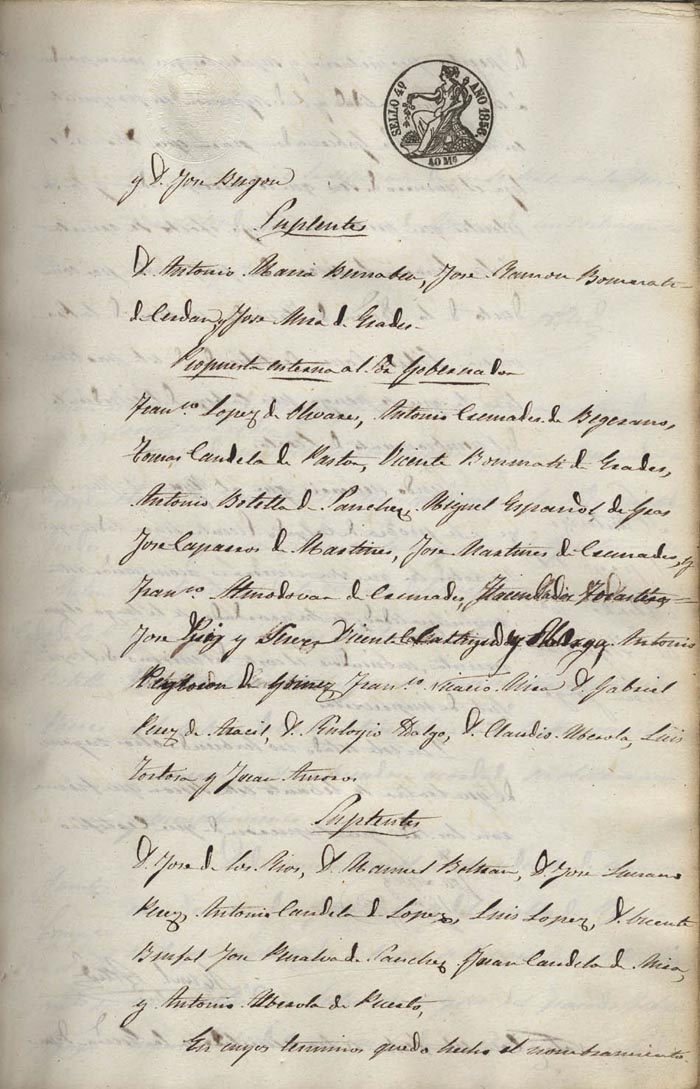 SELLO 4º AÑO 1856.
40 Ms
y D. Jose Burgon
Suplentes
D. Antonio Maria Bernabeu, Jose Ramon Bonmati
de Cerdan y Jose Mira de Grades.
Propuesta en terna al Sr. Gobernador
Franco Lopez de Olivares, Antonio Cremades de Bigerano,
Tomas Candela de Pastor, Vicente Bonmati de Grades,
Antonio Botella de Sanchez, Miguel Español de Gras
Jose Caparros de Martines, Jose Martines de Cremades y
Franco Almodovar de Cremades, Hacendados
Jose Puig y Perez, Vicente y Antonio
de Gomez Franco Nicacio Mira D. Gabriel
Perez de Aracil, D. Eulogio Dalgo, D. Claudio Uberola, Luis
Tortosa y Juan Amoros
Suplentes
D. Jose de los Rios, D. Manuel Beltran, D. Jose
Perez, Antonio Candela de Lopez, Luis Lopez, D. Vicente
Binfal Jose Peralva de Sanchez Juan Candela de Mira,
y Antonio Uberola de Puerto,
En cuyos terminos quedo hecho el nombramiento